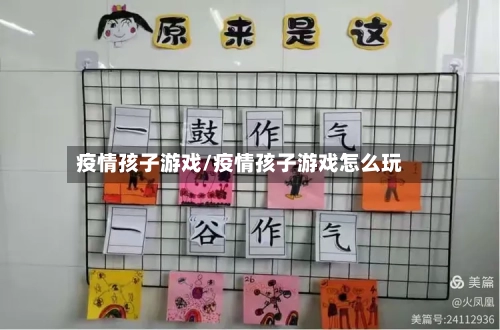 原来是这
一鼓作气
疫情孩子游戏/疫情孩子游戏怎么玩
一谷作气
26
美篇
@火凤凰
美篇号:24112936